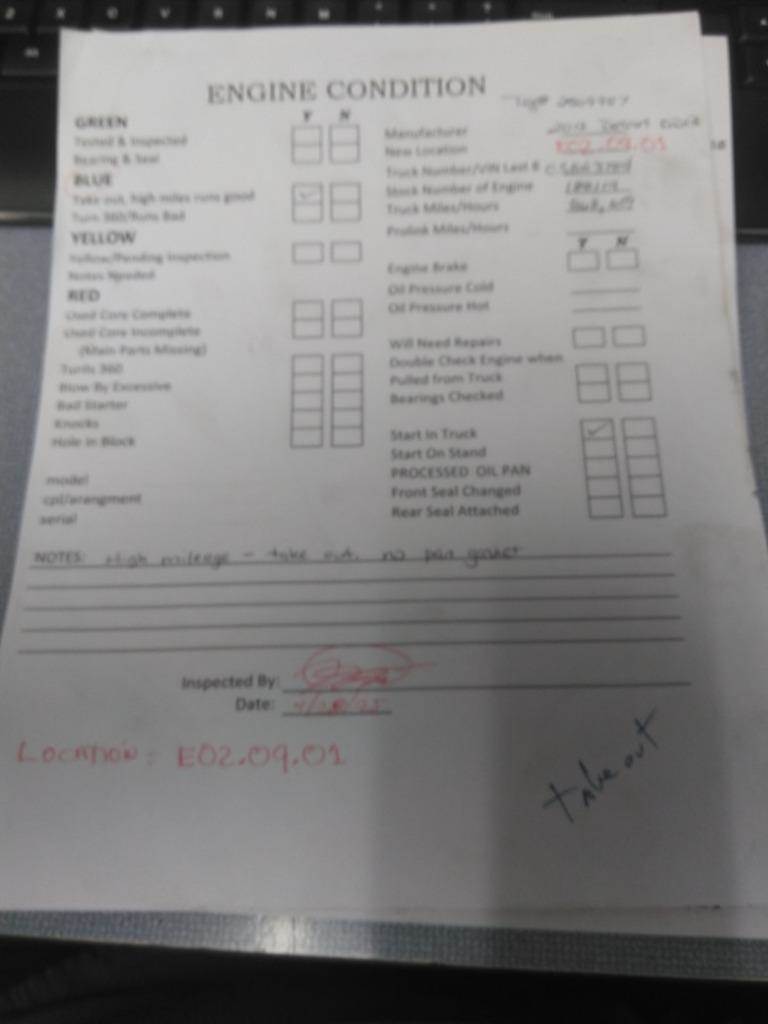 ENGINE CONDITION
Tag#
Y N
GREEN
Tested & Inspected
Bearing & Seal
BLUE
Take out, high miles runs good
Turn 360/Runs Bad
YELLOW
Yellow/Pending Inspection
Notes Needed
RED
Used Core Complete
Used Core Incomplete
(Main Parts Missing)
Turns 360
Blow By Excessive
Bad Starter
Knocks
Hole in Block
model
cpl/arangment
serial
Manufacturer
New Location E02.09.01
Truck Number/VIN Last 8
Stock Number of Engine
Truck Miles/Hours
Prolink Miles/Hours
Y N
Engine Brake
Oil Pressure Cold
Oil Pressure Hot
Will Need Repairs
Double Check Engine when
Pulled from Truck
Bearings Checked
Start In Truck
Start On Stand
PROCESSED OIL PAN
Front Seal Changed
Rear Seal Attached
NOTES: High mileage - take out. no pan gasket
Inspected By:
Date:
LOCATION: E02.09.01
take out